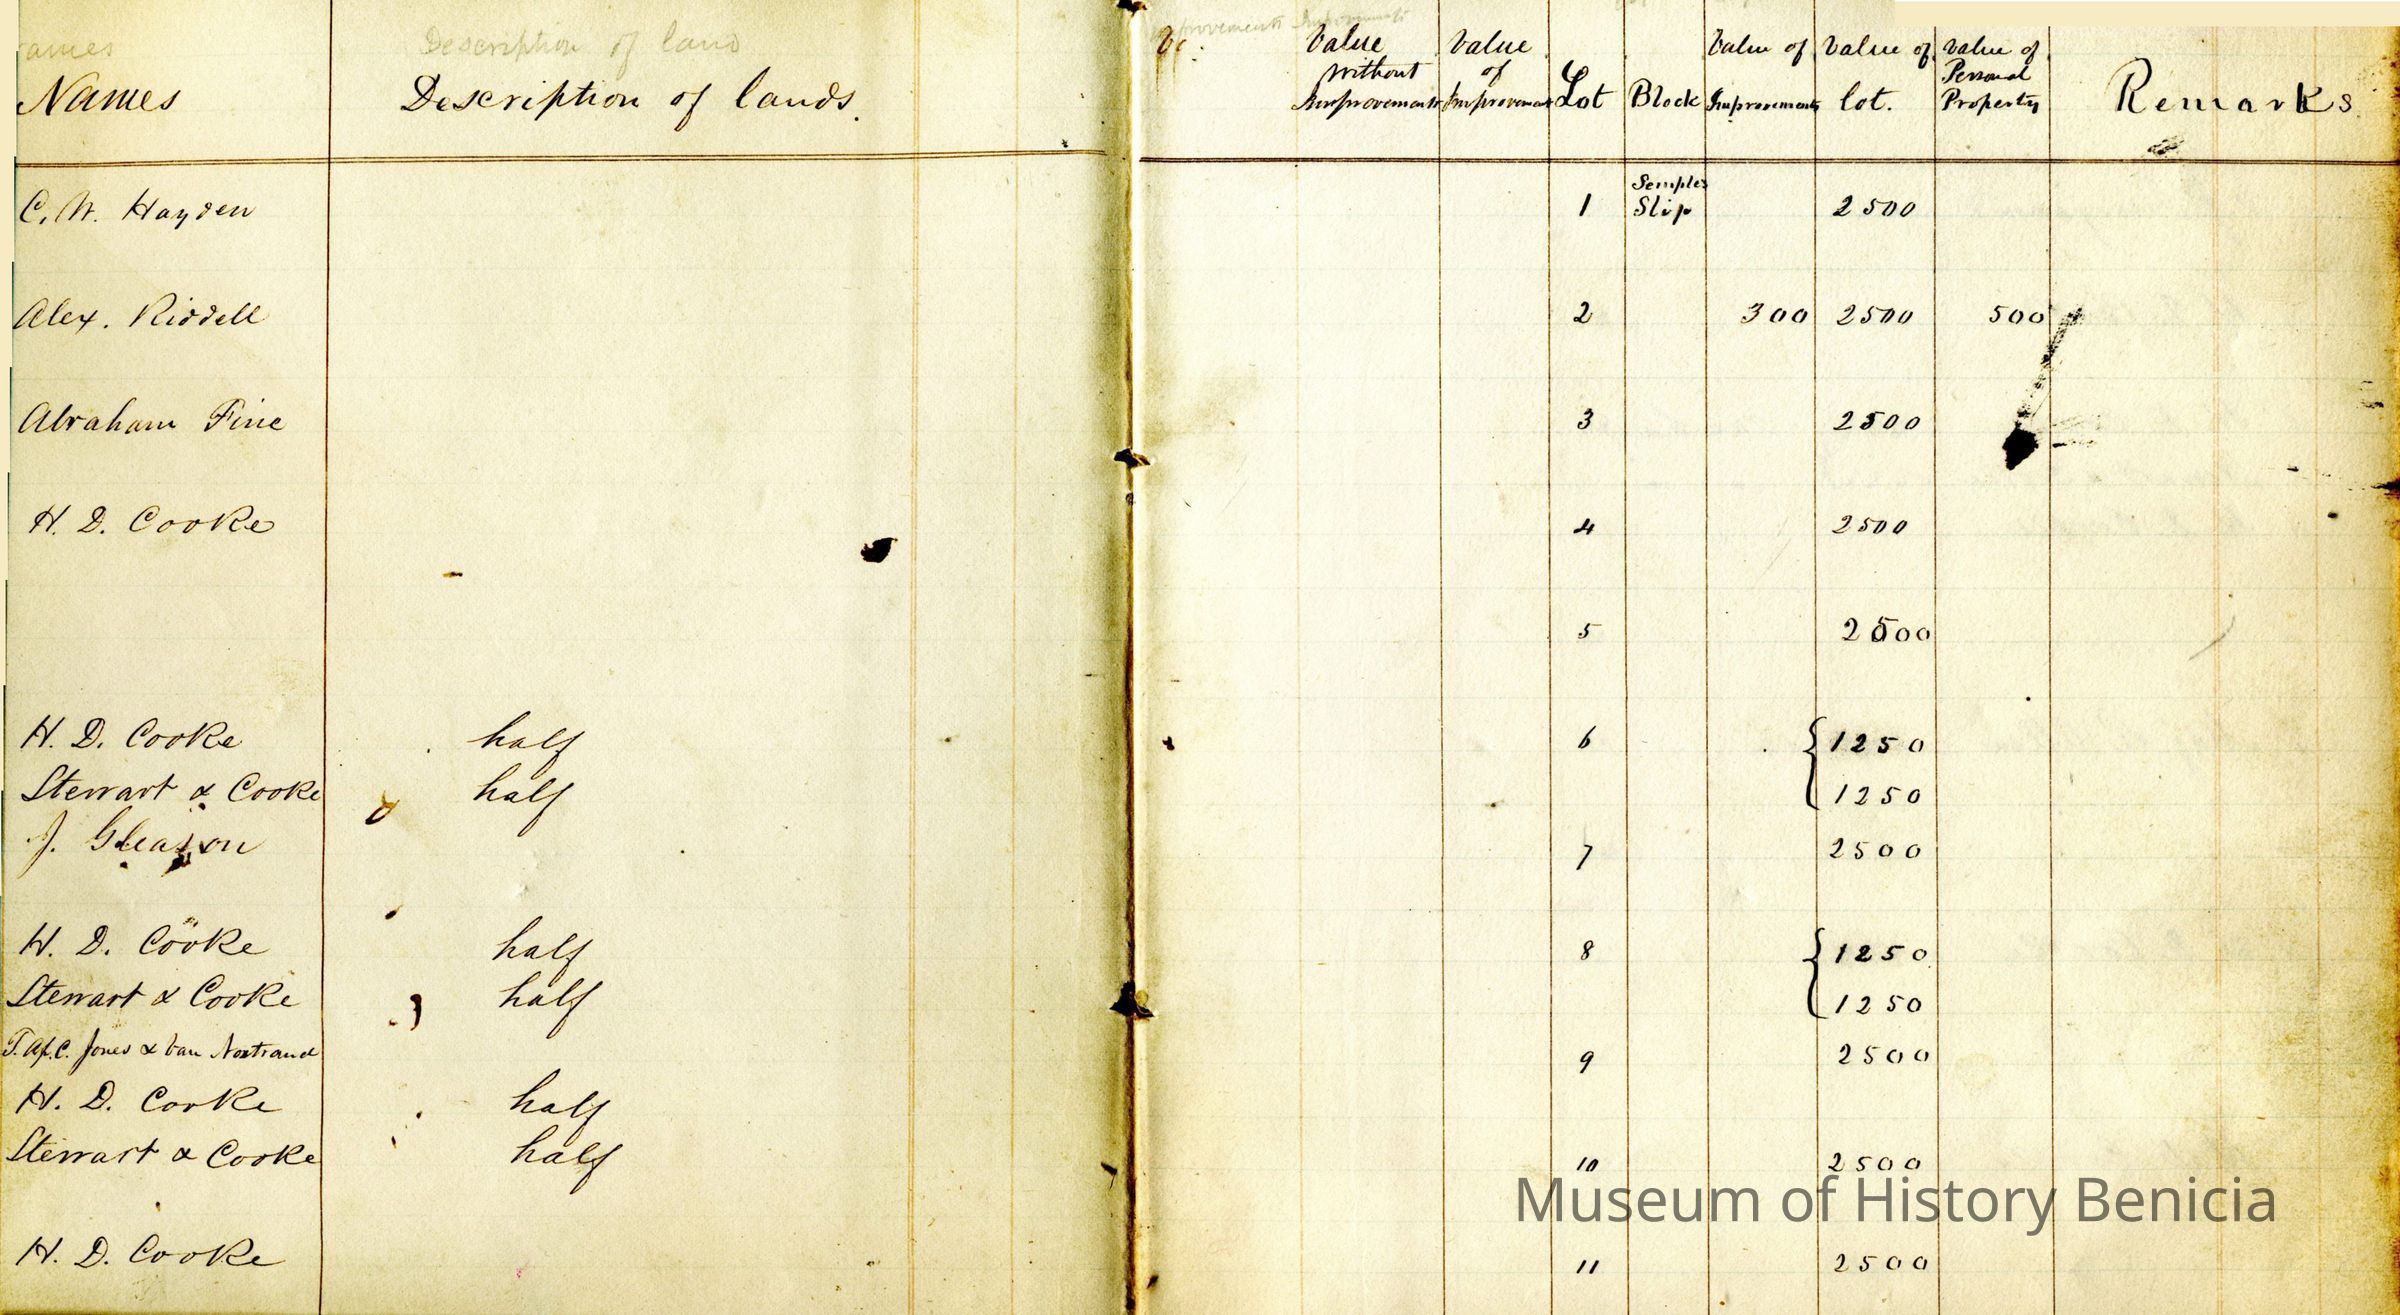 Names Description of land Improvements Improvements
Names Description of lands. Value Without Improvements Value of Improvement Lot Block Value of Improvements Value of lot. Value of Personal Property Remarks.
C. W. Hayden 1 Semples Slip 2500
Alex. Riddell 2 300 2500 500
Abraham Fine 3 2500
H. D. Cooke 4 2500
5 2500
H. D. Cooke half 6 { 1250
Stewart & Cooke half 1250
J. Gleason 7 2500
H. D. Cooke half 8 { 1250
Stewart & Cooke half 1250
T. Ap. C. Jones & Van Nostrand 9 2500
H. D. Cooke half
Stewart & Cooke half 10 2500
Museum of History Benicia
H. D. Cooke 11 2500